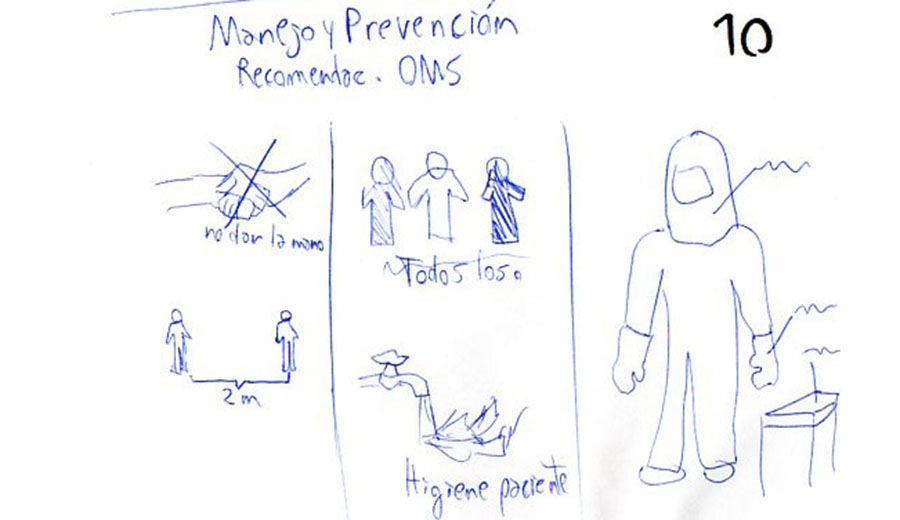 Manejo y Prevención
Recomendac. OMS
10
no dar la mano
2 m
Todos los
Higiene paciente